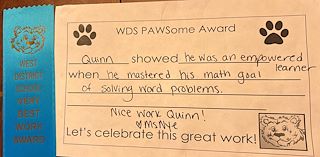 WDS PAWSome Award
Quinn showed he was an empowered
learner
when he mastered his math goal
of solving word problems.
Nice Work Quinn!
♡MsNye
Let's celebrate this great work!
WEST
DISTRICT
SCHOOL
VERY
BEST
WORK
AWARD